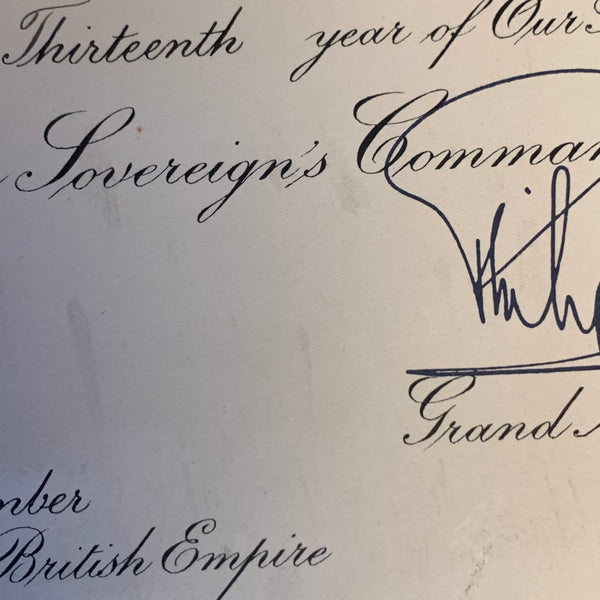 Thirteenth year of Our
Sovereign's Comman
Phili
Grand
mber
British Empire